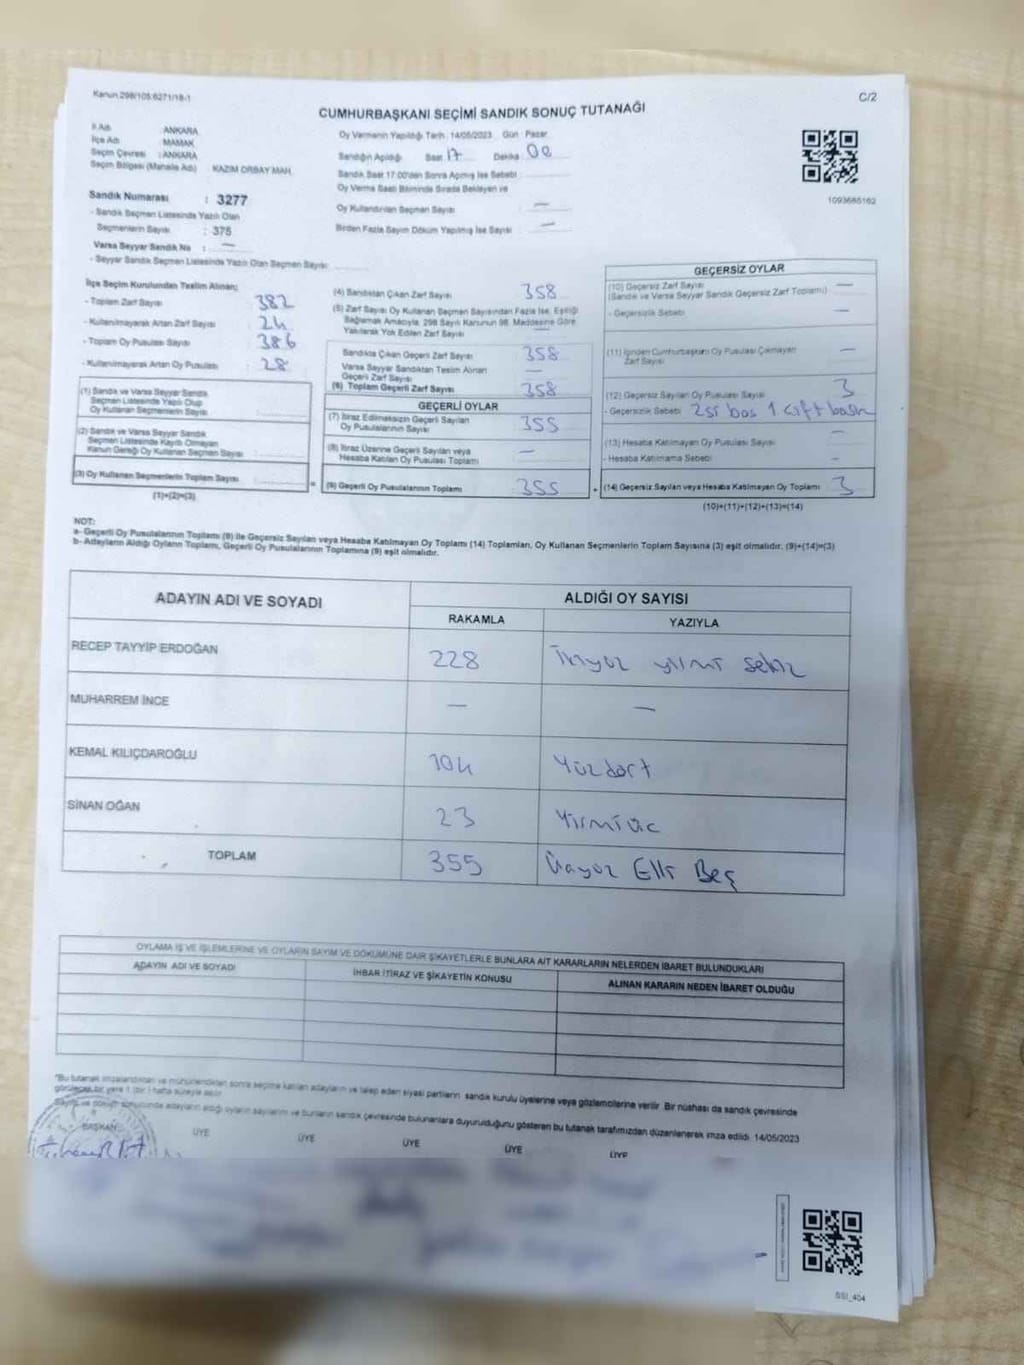 Kanun.298/105.6271/18-1
C/2
CUMHURBAŞKANI SEÇİMİ SANDIK SONUÇ TUTANAĞI
İl Adı : ANKARA
İlçe Adı : MAMAK
Seçim Çevresi : ANKARA
Seçim Bölgesi (Mahalle Adı) : KAZIM ORBAY MAH.
Sandık Numarası : 3277
- Sandık Seçmen Listesinde Yazılı Olan
Seçmenlerin Sayısı : 375
Varsa Seyyar Sandık No : —
- Seyyar Sandık Seçmen Listesinde Yazılı Olan Seçmen Sayısı
Oy Vermenin Yapıldığı Tarih : 14/05/2023 Gün : Pazar
Sandığın Açıldığı Saat 17 Dakika 00
Sandık Saat 17:00'den Sonra Açılmış İse Sebebi :
Oy Verme Saati Bitiminde Sırada Bekleyen ve
Oy Kullandırılan Seçmen Sayısı —
Birden Fazla Sayım Döküm Yapılmış İse Sayısı —
1093685162
İlçe Seçim Kurulundan Teslim Alınan;
- Toplam Zarf Sayısı 382
- Kullanılmayarak Artan Zarf Sayısı 24
- Toplam Oy Pusulası Sayısı 386
- Kullanılmayarak Artan Oy Pusulası 28
(1) Sandık ve Varsa Seyyar Sandık
Seçmen Listesinde Yazılı Olup
Oy Kullanan Seçmenlerin Sayısı
(2) Sandık ve Varsa Seyyar Sandık
Seçmen Listesinde Kayıtlı Olmayan
Kanun Gereği Oy Kullanan Seçmen Sayısı
(3) Oy Kullanan Seçmenlerin Toplam Sayısı
(1)+(2)=(3)
(4) Sandıktan Çıkan Zarf Sayısı 358
(5) Zarf Sayısı Oy Kullanan Seçmen Sayısından Fazla İse, Eşitliği
Sağlamak Amacıyla, 298 Sayılı Kanunun 98. Maddesine Göre
Yakılarak Yok Edilen Zarf Sayısı
Sandıkta Çıkan Geçerli Zarf Sayısı 358
Varsa Seyyar Sandıktan Teslim Alınan
Geçerli Zarf Sayısı —
(6) Toplam Geçerli Zarf Sayısı 358
GEÇERLİ OYLAR
(7) İtiraz Edilmeksizin Geçerli Sayılan
Oy Pusulalarının Sayısı 355
(8) İtiraz Üzerine Geçerli Sayılan veya
Hesaba Katılan Oy Pusulası Toplamı —
= (9) Geçerli Oy Pusulalarının Toplamı 355
GEÇERSİZ OYLAR
(10) Geçersiz Zarf Sayısı —
(Sandık ve Varsa Seyyar Sandık Geçersiz Zarf Toplamı)
- Geçersizlik Sebebi —
(11) İçinden Cumhurbaşkanı Oy Pusulası Çıkmayan
Zarf Sayısı —
(12) Geçersiz Sayılan Oy Pusulası Sayısı 3
- Geçersizlik Sebebi 2si boş 1 çift baskı
(13) Hesaba Katılmayan Oy Pusulası Sayısı —
- Hesaba Katılmama Sebebi —
+ (14) Geçersiz Sayılan veya Hesaba Katılmayan Oy Toplamı 3
(10)+(11)+(12)+(13)=(14)
NOT:
a- Geçerli Oy Pusulalarının Toplamı (9) ile Geçersiz Sayılan veya Hesaba Katılmayan Oy Toplamı (14) Toplamları, Oy Kullanan Seçmenlerin Toplam Sayısına (3) eşit olmalıdır. (9)+(14)=(3)
b- Adayların Aldığı Oyların Toplamı, Geçerli Oy Pusulalarının Toplamına (9) eşit olmalıdır.
ADAYIN ADI VE SOYADI ALDIĞI OY SAYISI
RAKAMLA YAZIYLA
RECEP TAYYİP ERDOĞAN 228 İkiyüz yirmi sekiz
MUHARREM İNCE — —
KEMAL KILIÇDAROĞLU 104 Yüzdört
SİNAN OĞAN 23 Yirmiüç
TOPLAM 355 Üçyüz Elli Beş
OYLAMA İŞ VE İŞLEMLERİNE VE OYLARIN SAYIM VE DÖKÜMÜNE DAİR ŞİKAYETLERLE BUNLARA AİT KARARLARIN NELERDEN İBARET BULUNDUKLARI
ADAYIN ADI VE SOYADI İHBAR İTİRAZ VE ŞİKAYETİN KONUSU ALINAN KARARIN NEDEN İBARET OLDUĞU
"Bu tutanak imzalandıktan ve mühürlendikten sonra seçime katılan adayların ve talep eden siyasi partilerin sandık kurulu üyelerine veya gözlemcilerine verilir. Bir nüshası da sandık çevresinde
görülecek bir yere 1 (bir) hafta süreyle asılır.
Sayım ve döküm sonucunda adayların aldığı oyların sayılarını ve bunların sandık çevresinde bulunanlara duyurulduğunu gösteren bu tutanak tarafımızdan düzenlenerek imza edildi. 14/05/2023
BAŞKAN ÜYE ÜYE ÜYE ÜYE ÜYE
SSI_404